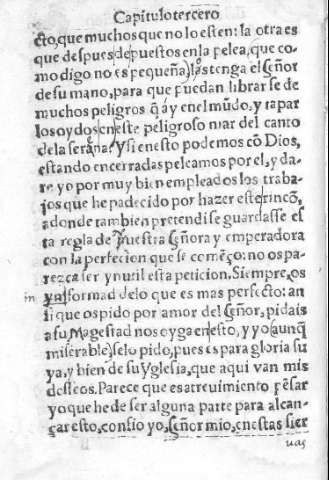 Capitulo tercero
cto, que muchos que no lo esten: la otra es
que despues de puestos en la pelea, que co-
mo digo no es pequeña, las tenga el señor
de su mano, para que puedan librarse de
muchos peligros q̃ ay en el mũdo, y tapar
los oydos en este peligroso mar del canto
de la serena. Y si en esto podemos cõ Dios,
estando encerradas peleamos por el, y da-
re yo por muy bien empleados los traba-
jos que he padecido por hazer este rincõ,
adonde tambien pretendi se guardasse es
ta regla de nuestra señora y emperadora
con la perfecion que se comẽço: no os pa-
rezca ser ynutil esta peticion. Siempre, os
in
formad de lo que es mas perfecto: an
si que os pido por amor del señor, pidais
a su Magestad nos oyga en esto, y yo (aunq̃
miserable) se lo pido, pues es para gloria su
ya, y bien de su Yglesia, que aqui van mis
deseos. Parece que es atreuimiento pẽsar
yo que he de ser alguna parte para alcan-
çar esto, confio yo, señor mio, en estas sier
uas